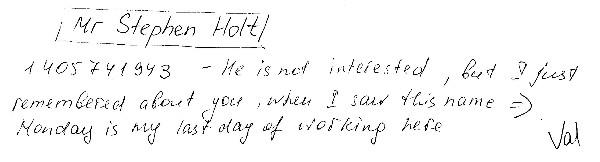 Mr Stephen Holt
1405741943 - He is not interested, but I just
remembered about you, when I saw this name =)
Monday is my last day of working here
Val